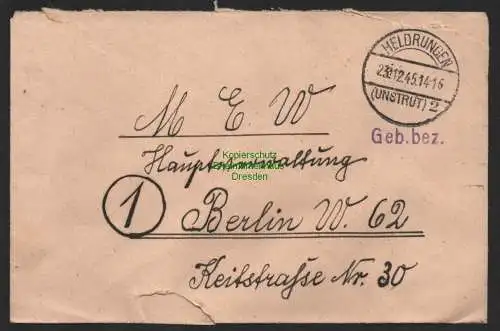 HELDRUNGEN
23.12.45.14-16
(UNSTRUT) 2
Geb.bez.
M E W
Hauptverwaltung
Kopierschutz
Dresden
1
Berlin W. 62
Keitstrasse Nr. 30